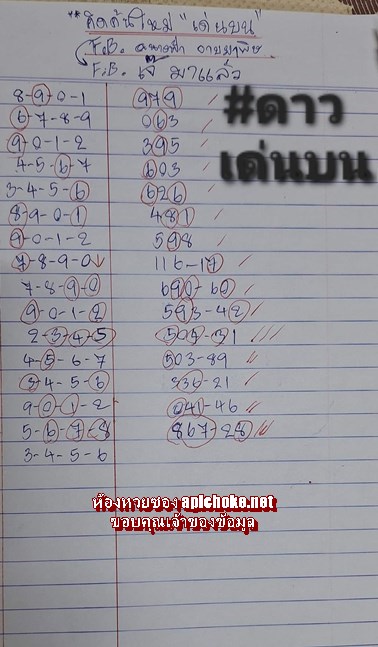 **คิดค้นใหม่ "เด่นบน"
F.B.
F.B. เจ๊ มาแล้ว
#ดาว
เด่นบน
8-9-0-1 979
6-7-8-9 063
9-0-1-2 395
4-5-6-7 603
3-4-5-6 626
8-9-0-1 481
9-0-1-2 598
7-8-9-0 116-17
7-8-9-0 690-60
9-0-1-2 593-42
2-3-4-5 505-31
4-5-6-7 503-89
3-4-5-6 336-21
9-0-1-2 041-46
5-6-7-8 867-28
3-4-5-6
ห้องหวยซอง apichoke.net
ขอบคุณเจ้าของข้อมูล